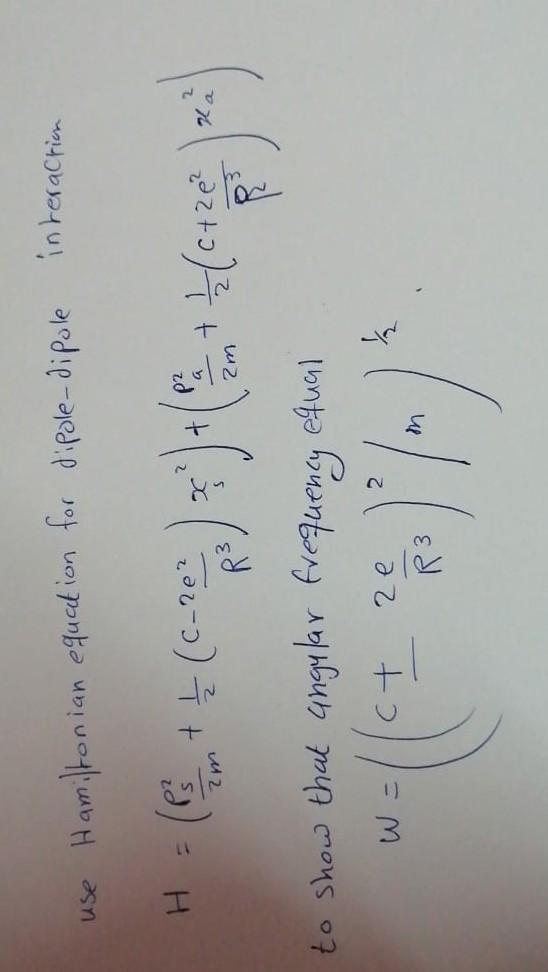 use Hamiltonian equation for dipole-dipole interaction
H = (P_s^2/2m + 1/2 (C - 2e^2/R^3) x_s^2) + (P_a^2/2m + 1/2 (C + 2e^2/R^3) x_a^2)
to show that angular frequency equal
W = ((C ± 2e/R^3)^2 / m)^1/2 .